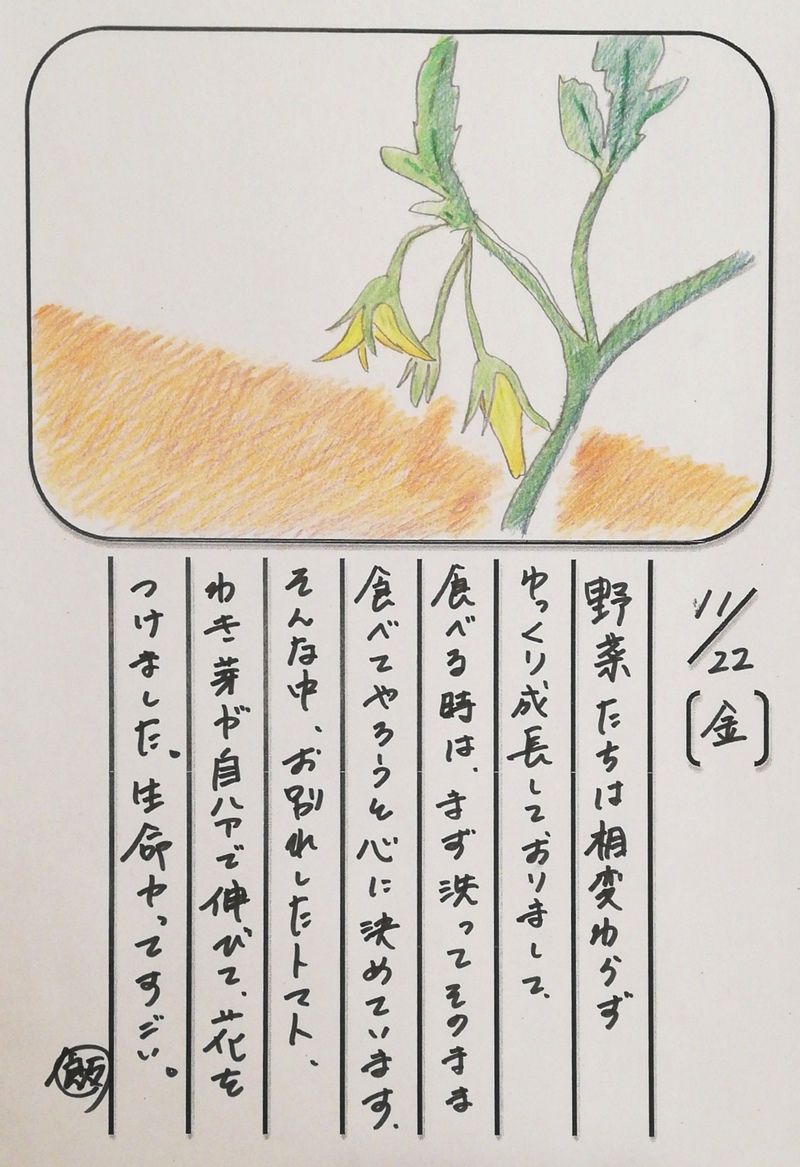 11/22
[金]
野菜たちは相変わらず
ゆっくり成長しておりまして、
食べる時は、まず洗ってそのまま
食べてやろうと心に決めています。
そんな中、お別れしたトマト、
わき芽が自力で伸びて、花を
つけました。生命力ってすごい。
飯